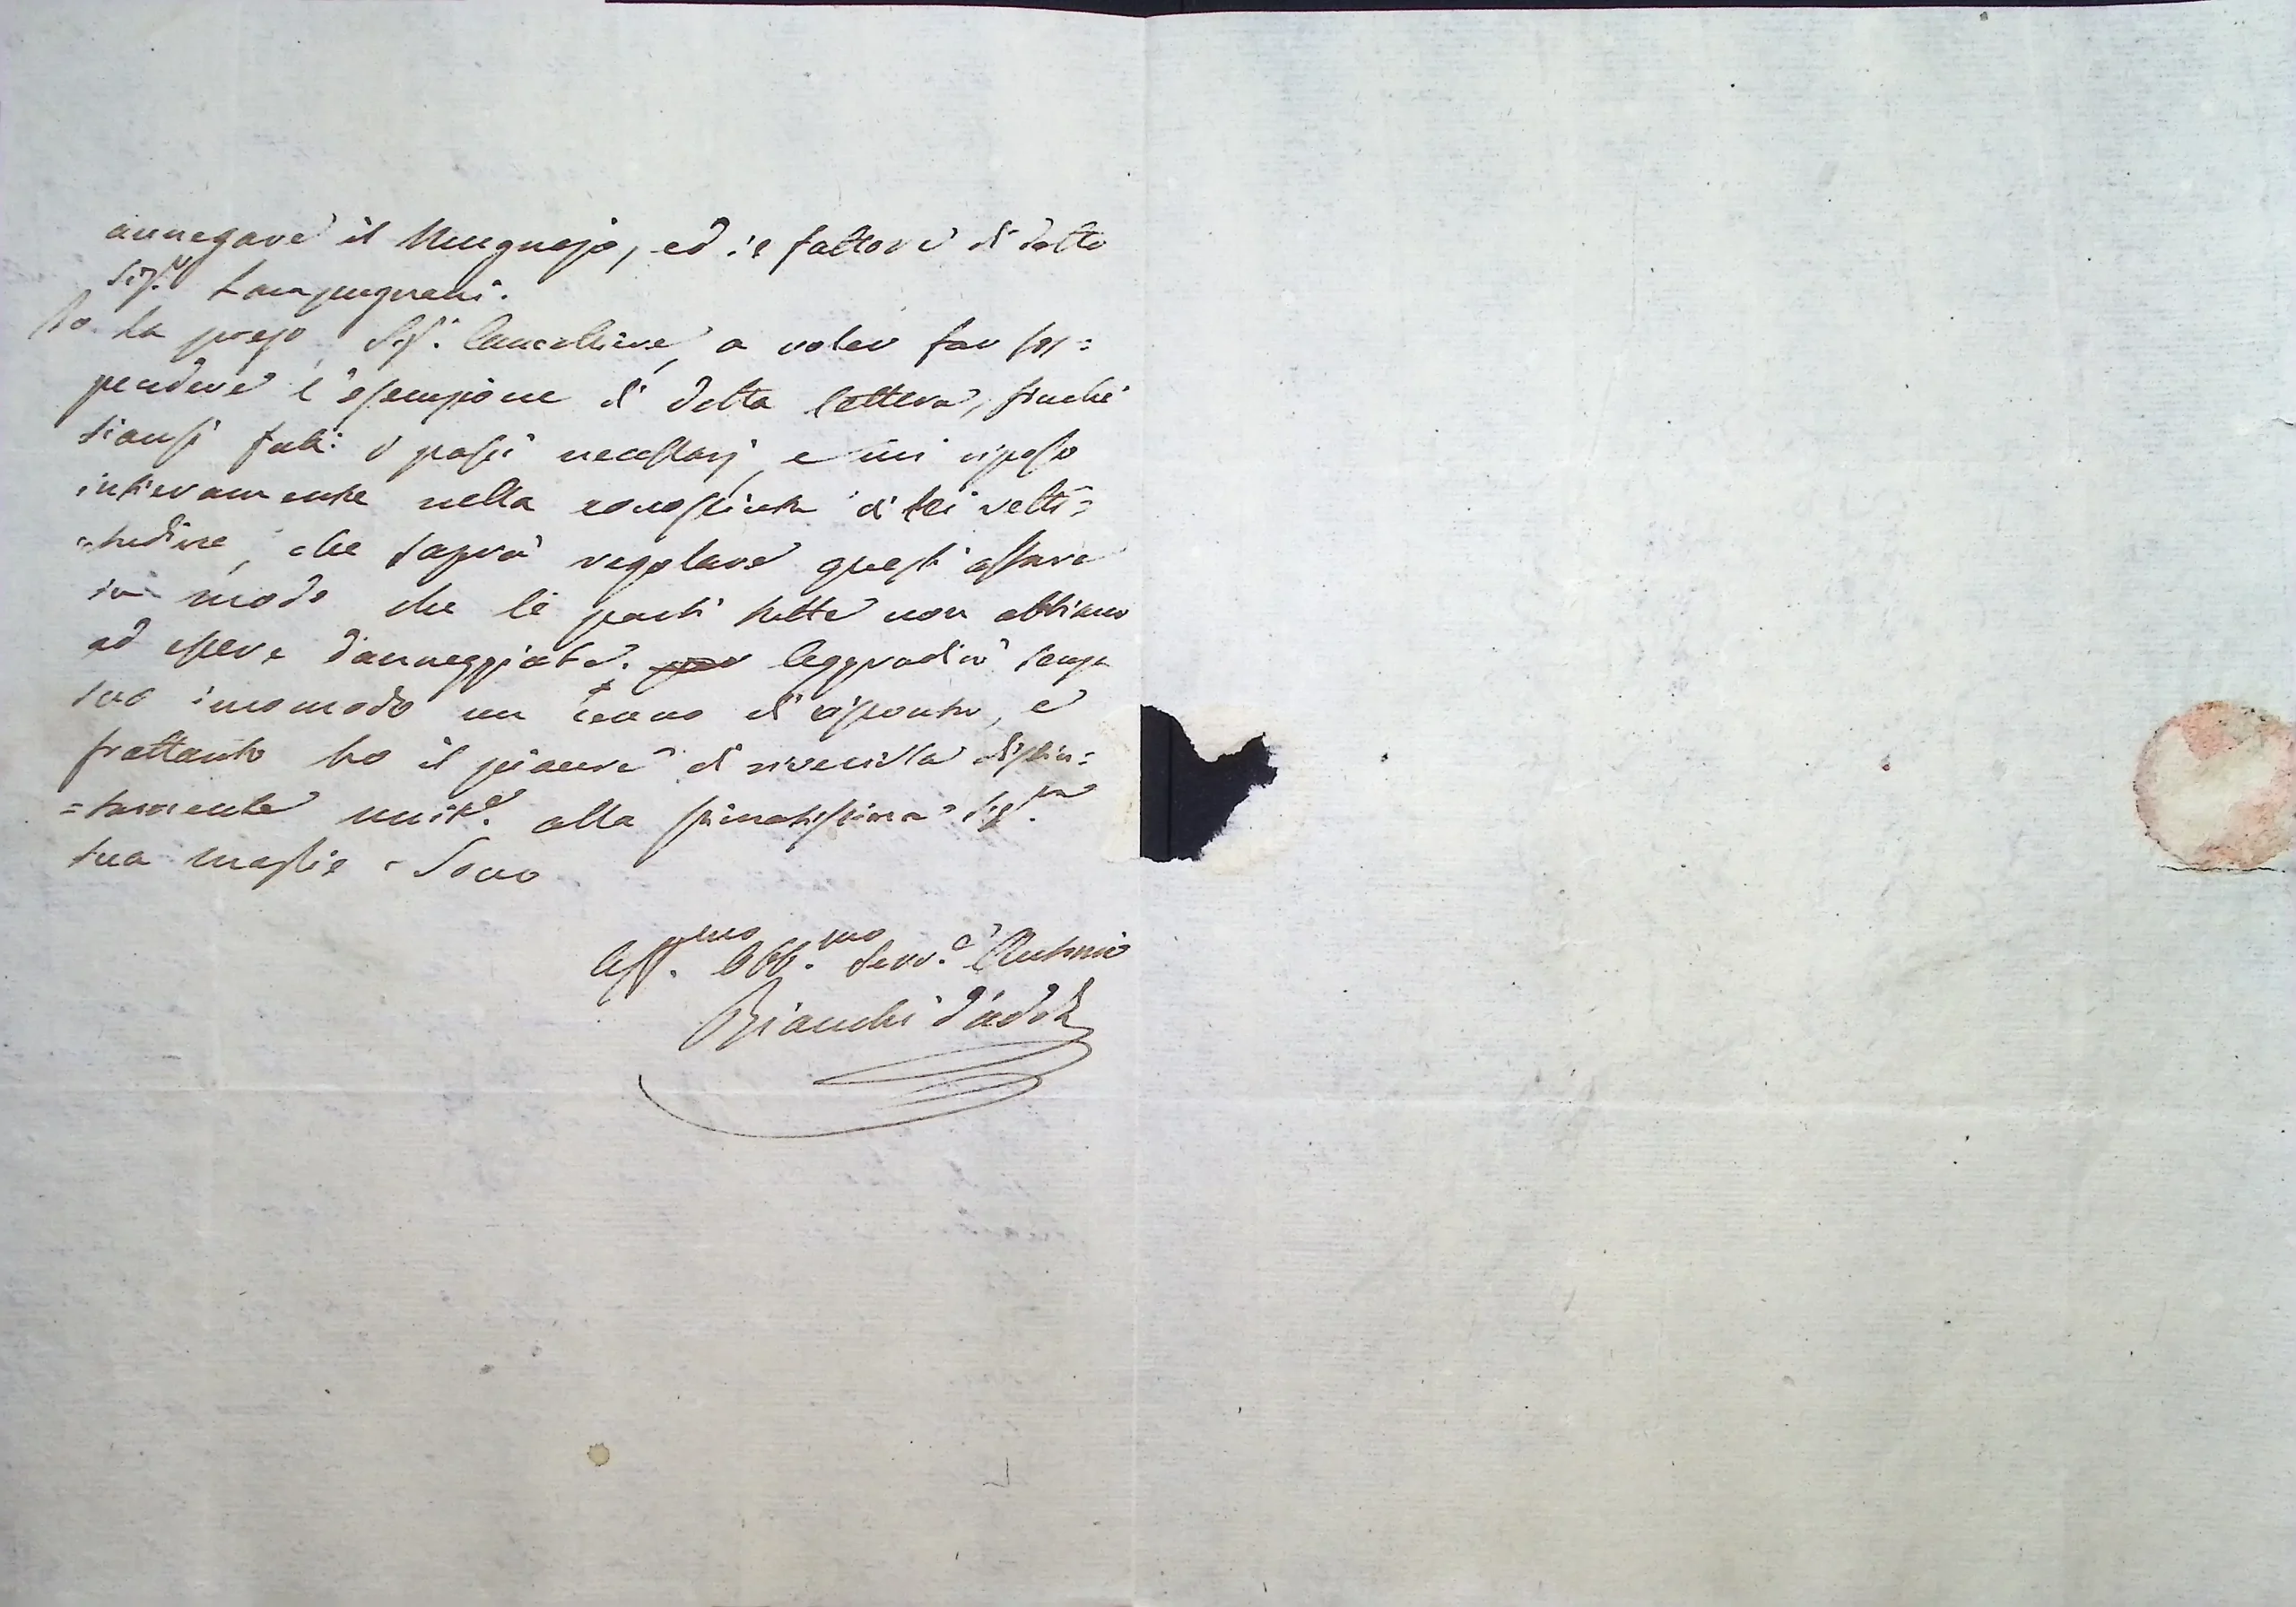 annegare il Mugnajo, ed il fattore di detto
Sig.r Lampugnani.
Io la prego, Sig.r Cancelliere, a voler far sos=
pendere l'esenzione di detta lettera, finchè
siansi fatti i passi necessarj, e mi riposo
intieramente nella conosciuta di lei retti=
=tudine, che saprà regolare quest'affare
in modo che le parti tutte non abbiano
ad essere danneggiate. leggradirò senza
suo incomodo un cenno di risposta, e
frattanto ho il piacere di riverirla distin=
=tamente unit.e alla stimatissima Sig.ra
sua moglie. Sono
Aff.mo Obb.mo Serv.e Antonio
Bianchi d'Adda